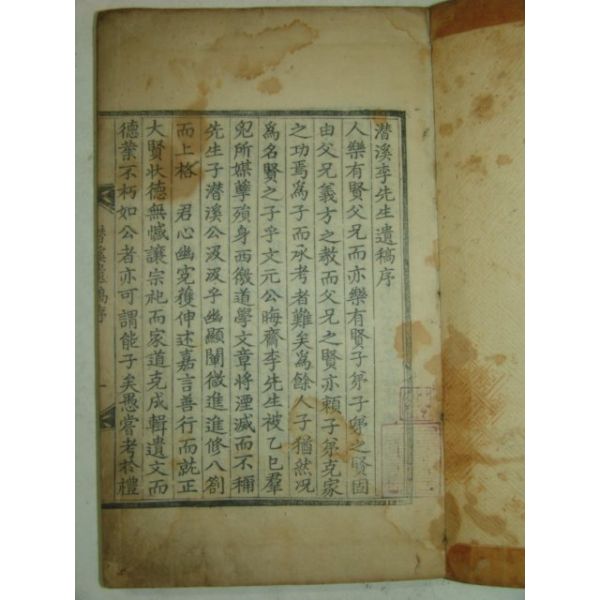 潛溪李先生遺稿序
人樂有賢父兄而亦樂有賢子弟子弟之賢固
由父兄義方之教而父兄之賢亦賴子弟克家
之功焉爲子而承考者難矣爲餘人子猶然况
爲名賢之子乎文元公晦齋李先生被乙巳羣
兇所媒孼殞身西徼道學文章將湮滅而不稱
先生子潛溪公汲汲乎幽顯闡微進進修八劄
而上格 君心幽寃獲伸述嘉言善行而就正
大賢狀德無憾讓宗祀而家道克成輯遺文而
德業不朽如公者亦可謂能子矣愚嘗考於禮
潛溪遺稿序
一